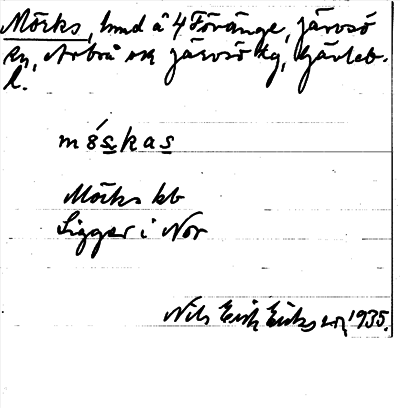 Mörks, lmd å 4 Föränge, Järvsö
sn, Arbrå och Järvsö tg, Gävleb.
l.
mö́s̲kas̲
Mörks kb
Ligger i Nor
Nils Erik Eriksson, 1935.